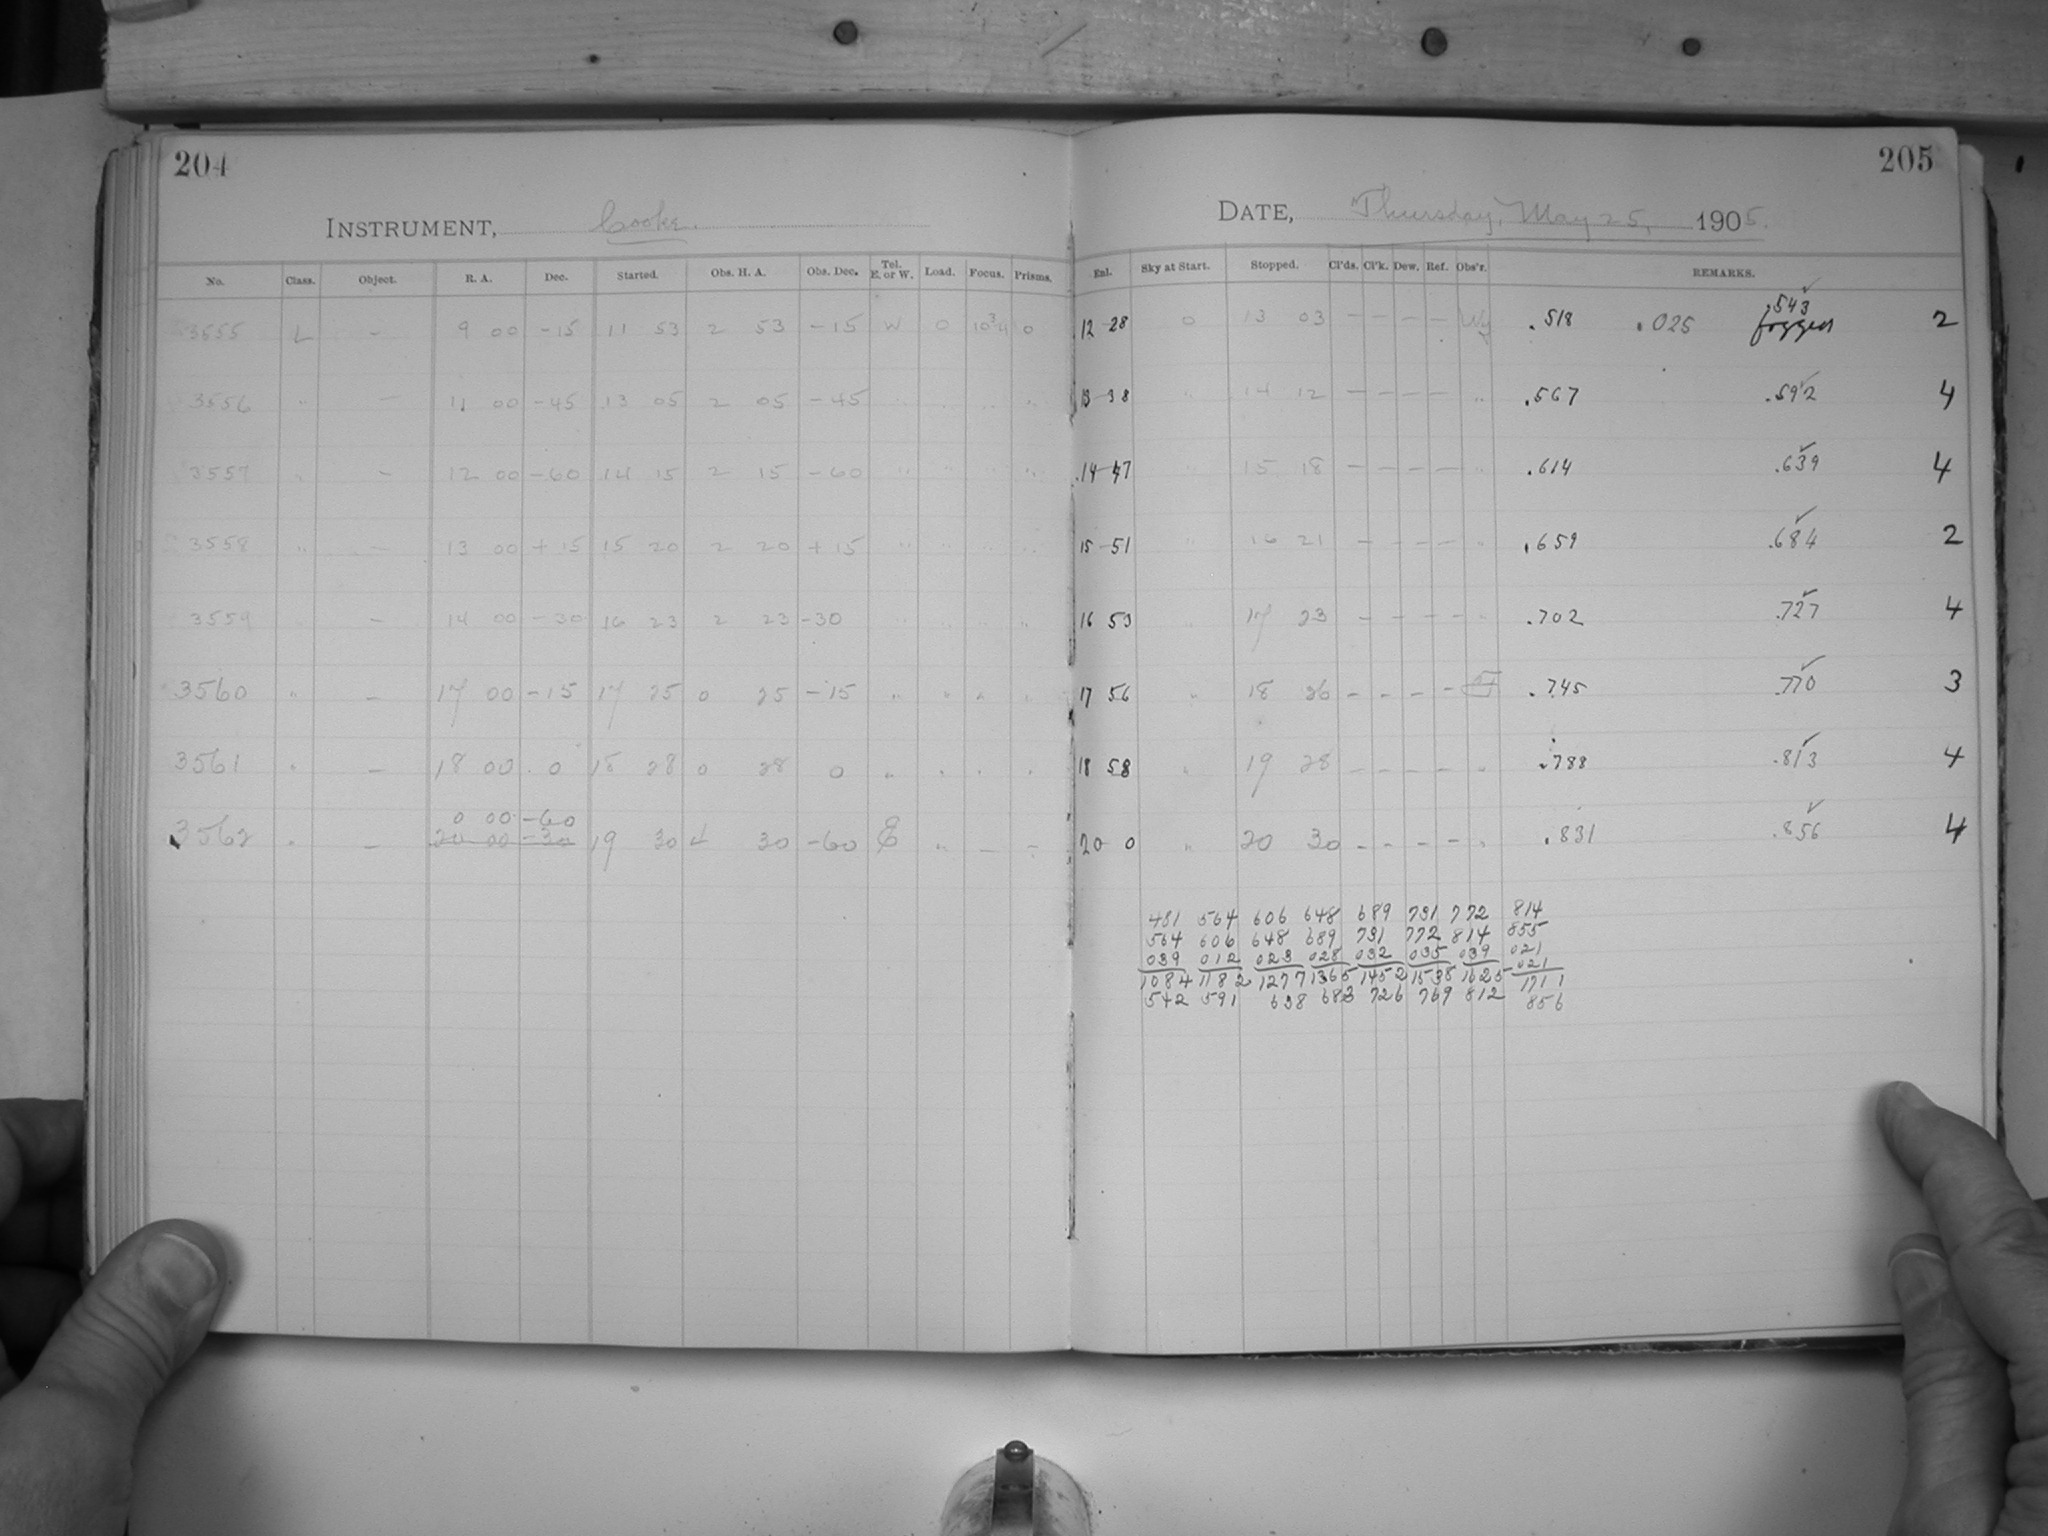 204
INSTRUMENT, Cooke.
No. Class. Object. R. A. Dec. Started. Obs. H. A. Obs. Dec. Tel. E. or W. Load. Focus. Prisms.
3555 L - 9 00 -15 11 53 2 53 -15 W 0 10 3/4 0
3556 " - 11 00 -45 13 05 2 05 -45 " " " "
3557 " - 12 00 -60 14 15 2 15 -60 " " " "
3558 " - 13 00 +15 15 20 2 20 +15 " " " "
3559 " - 14 00 -30 16 23 2 23 -30 " " " "
3560 " - 17 00 -15 17 25 0 25 -15 " " " "
3561 " - 18 00 0 18 28 0 28 0 " " " "
0 00 -60
3562 " - 20 00 -30 19 30 4 30 -60 E " - -
205
DATE, Thursday, May 25, 1905.
Enl. Sky at Start. Stopped. Cl'ds. Cl'k. Dew. Ref. Obs'r. REMARKS.
.543
12-28 0 13 03 - - - - .518 .025 fogged 2
13-38 " 14 12 - - - - " .567 .592 4
14-47 " 15 18 - - - - " .614 .639 4
15-51 " 16 21 - - - - " .659 .684 2
16 53 " 17 23 - - - - " .702 .727 4
17 56 " 18 26 - - - - .745 .770 3
18 58 " 19 28 - - - - " .788 .813 4
20 0 " 20 30 - - - - " .831 .856 4
481 564 606 648 689 731 772 814
564 606 648 689 731 772 814 855
039 012 023 028 032 035 039 021
021
1084 1182 1277 1365 1452 1538 1625 1711
542 591 638 683 726 769 812 856